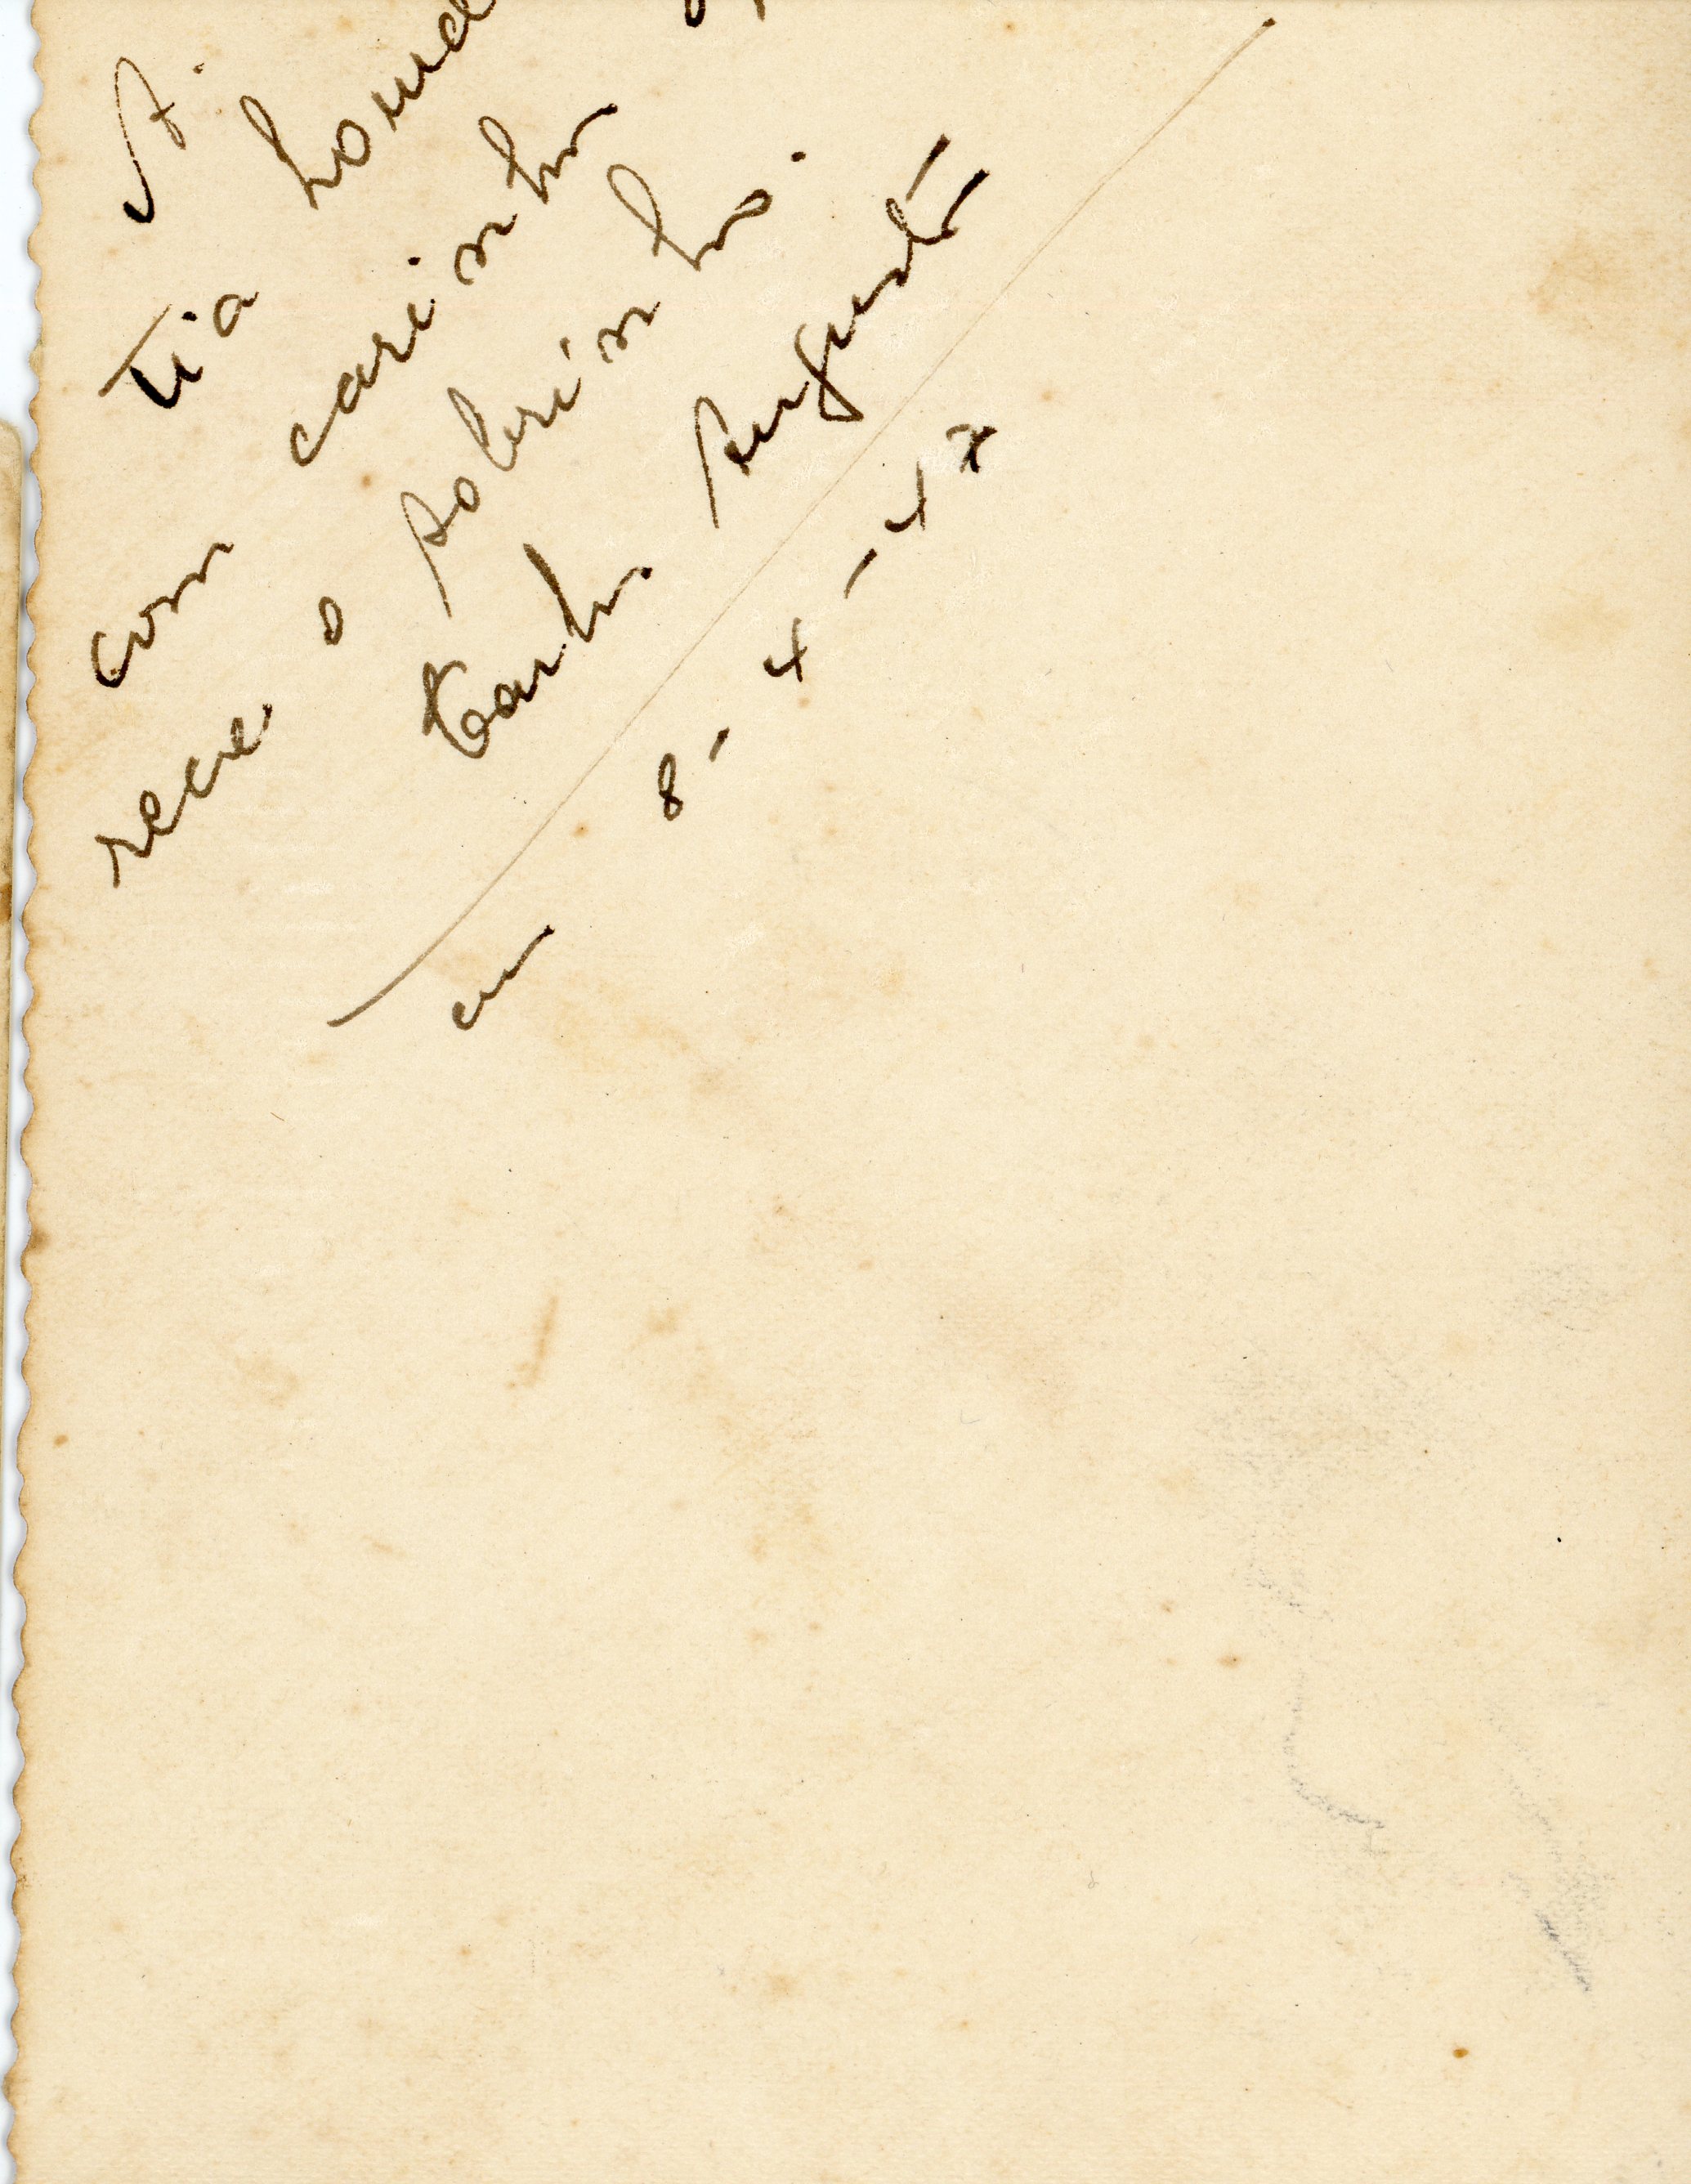 A.
Tia Lourd
com carinho
rece o sobrinho.
Carlos Augusto
em 8-4-47